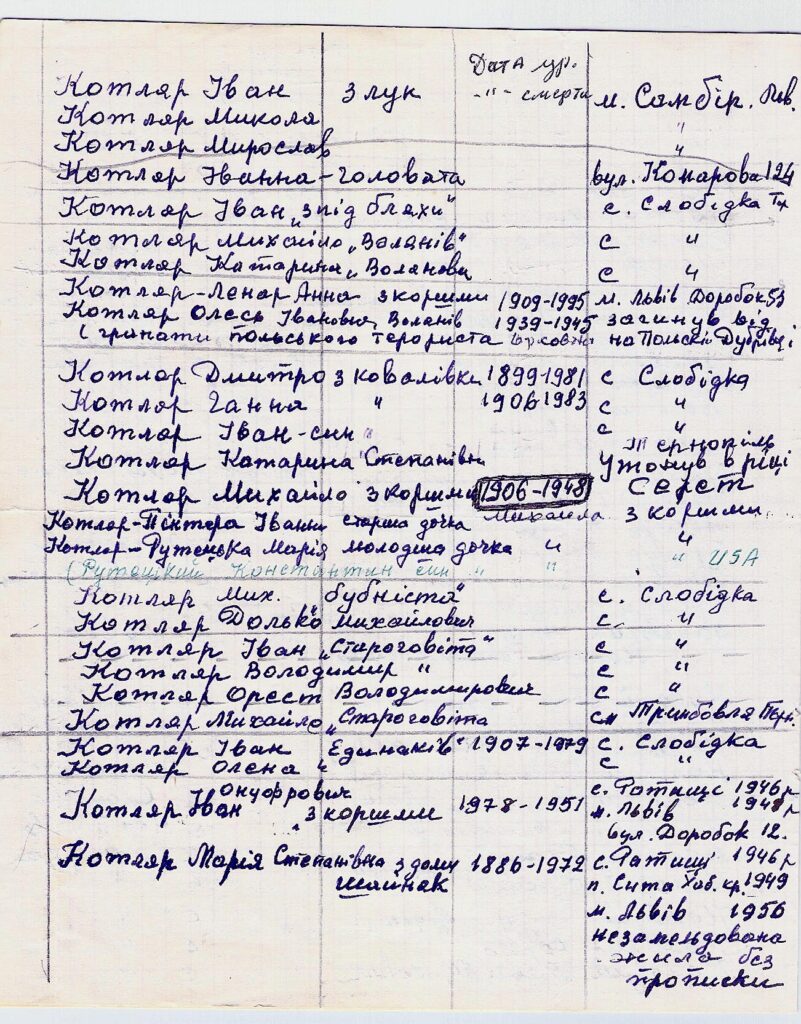 Дата ур.
Котляр Іван з лук -"- смерти м. Самбір. Льв.
Котляр Микола "
Котляр Мирослав "
Котляр Іванна-Головата вул. Комарова 124
Котляр Іван „зпід бляхи" с. Слобідка
Котляр Михайло „Воланів" с "
Котляр Катарина „Воланова с "
Котляр-Ленар Анна з коршми 1909-1995 м. Львів Доробок 53
Котляр Олесь Іванович Воланів 1939-1945 загинув від
(гранати польського терориста на Польскі Дубрівці
Котляр Дмитро з ковалівки 1899-1981 с Слобідка
Котляр Ганна " 1906-1983 с "
Котляр Іван-син " с "
Котляр Катарина Степанівна Тернопіль
Котляр Михайло з коршми 1906-1948 утонув в ріці Серет
Котляр-Пінтера Іванна старша дочка Михайла з коршми
Котляр-Рутецька Марія молодша дочка " "
(Рутецкий Константин син " " " USA
Котляр Мих. бубніста" с. Слобідка
Котляр Долько Михайлович с. "
Котляр Іван „Староговіта" с "
Котляр Володимир " с "
Котляр Орест Володимирович с "
Котляр Михайло „Староговіта см Тринбовля Терн.
Котляр Іван „Единаків" 1907-1979 с. Слобідка
Котляр Олена " с "
Онуфрович с. Ратищі 1946р
Котляр Іван з коршми 1978-1951 м. Львів 1948р
вул. Доробок 12.
Котляр Марія Степанівна з дому 1886-1972 с. Ратищі 1946р
Шайнак п. Сита Хаб. кр. 1949
м. Львів 1956
незамельдована
жила без
прописки